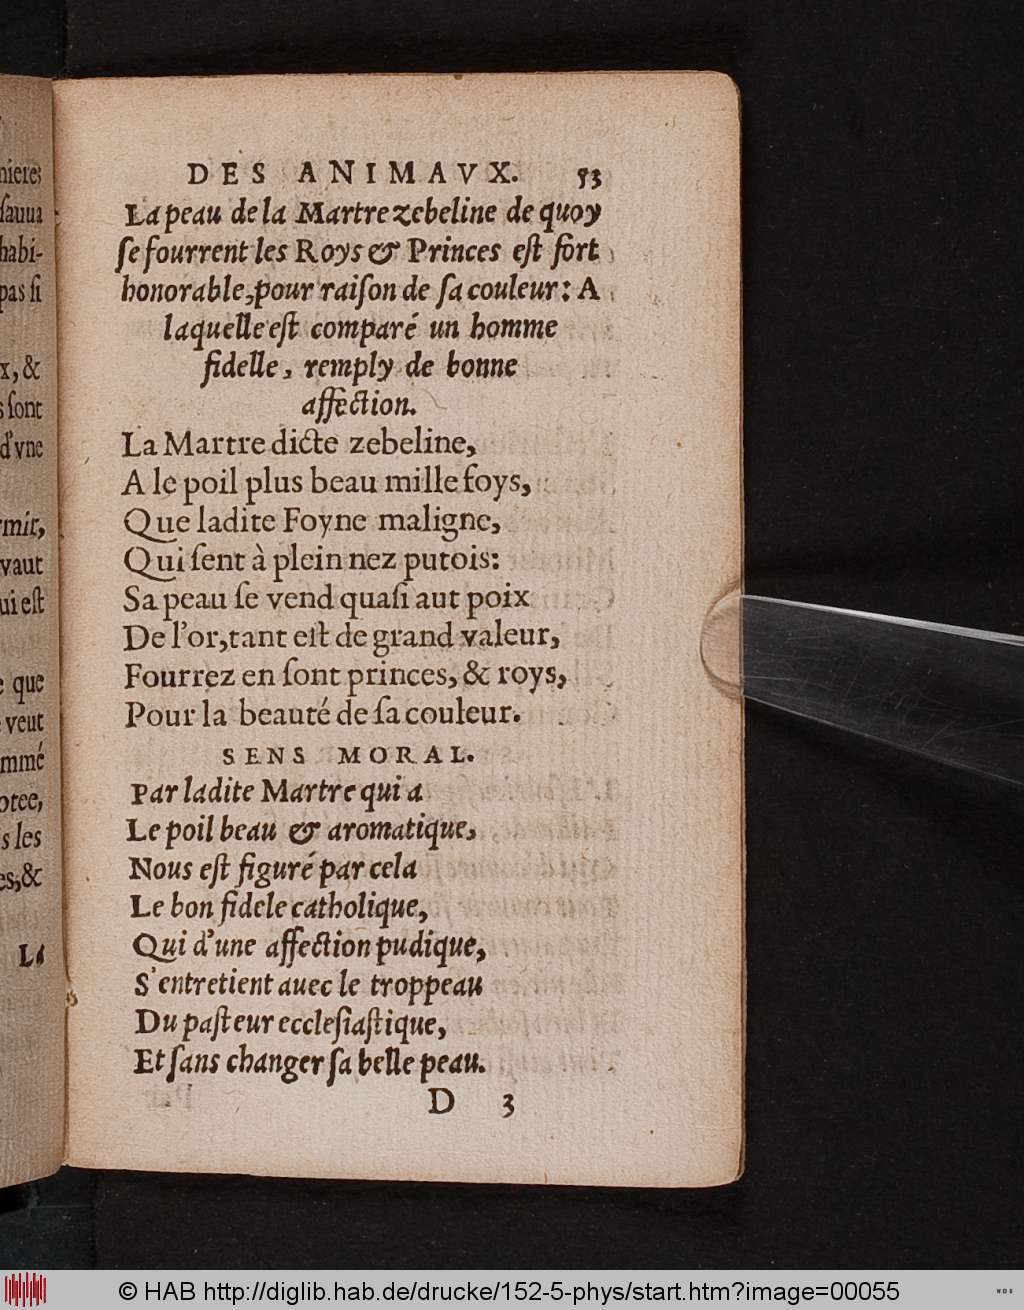 nieres
sauua
habi-
pas si
x, &
s sont
d'vne
rmir,
vaut
ui est
e que
veut
mmé
otee,
s les
es, &
La
DES ANIMAVX. 53
La peau de la Martre zebeline de quoy
se fourrent les Roys & Princes est fort
honorable, pour raison de sa couleur: A
laquelle est comparé un homme
fidelle, remply de bonne
affection.
La Martre dicte zebeline,
A le poil plus beau mille foys,
Que ladite Foyne maligne,
Qui sent à plein nez putois:
Sa peau se vend quasi aut poix
De l'or, tant est de grand valeur,
Fourrez en sont princes, & roys,
Pour la beauté de sa couleur.
SENS MORAL.
Par ladite Martre qui a
Le poil beau & aromatique,
Nous est figuré par cela
Le bon fidele catholique,
Qui d'une affection pudique,
S'entretient auec le troppeau
Du pasteur ecclesiastique,
Et sans changer sa belle peau.
D 3
© HAB http://diglib.hab.de/drucke/152-5-phys/start.htm?image=00055